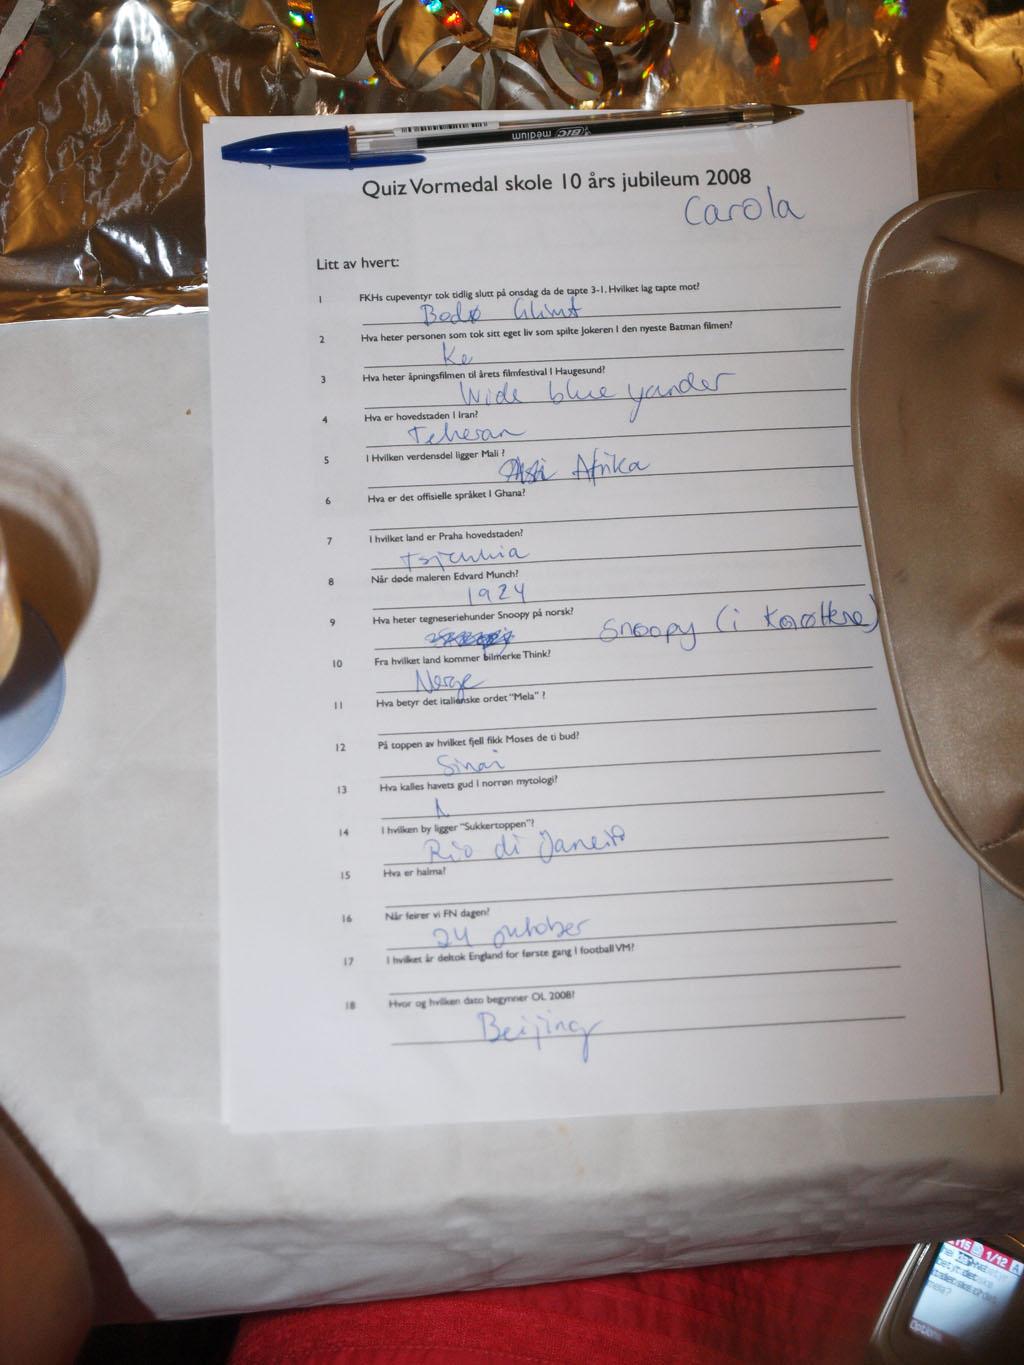 BIC medium
Quiz Vormedal skole 10 års jubileum 2008
Carola
Litt av hvert:
1 FKHs cupeventyr tok tidlig slutt på onsdag da de tapte 3-1. Hvilket lag tapte mot?
Bodø Glimt
2 Hva heter personen som tok sitt eget liv som spilte Jokeren I den nyeste Batman filmen?
Ke
3 Hva heter åpningsfilmen til årets filmfestival I Haugesund?
Wide blue yander
4 Hva er hovedstaden I Iran?
Teheran
5 I Hvilken verdensdel ligger Mali ?
Afrika
6 Hva er det offisielle språket I Ghana?
7 I hvilket land er Praha hovedstaden?
Tsjekkia
8 Når døde maleren Edvard Munch?
1924
9 Hva heter tegneseriehunder Snoopy på norsk?
Snoopy (i
10 Fra hvilket land kommer bilmerke Think?
Norge
11 Hva betyr det italienske ordet "Mela" ?
12 På toppen av hvilket fjell fikk Moses de ti bud?
Sinai
13 Hva kalles havets gud I norrøn mytologi?
14 I hvilken by ligger "Sukkertoppen"?
Rio di Janeiro
15 Hva er halma?
16 Når feirer vi FN dagen?
24 oktober
17 I hvilket år deltok England for første gang I football VM?
18 Hvor og hvilken dato begynner OL 2008?
Beijing
1/12